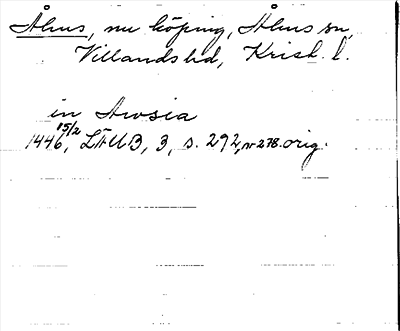 Åhus, nu köping, Åhus sn,
Villands hd, Krist. l.
in Awsia
1446 15/2, LÄUB, 3, s. 292, nr 278. orig.